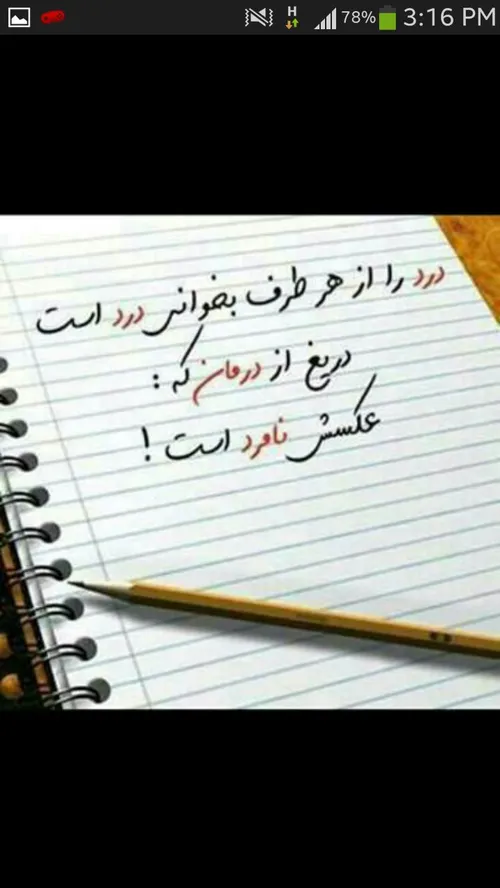 H 78% 3:16 PM
درد را از هر طرف بخوانی درد است
دریغ از درمان که :
عکسش نامرد است !